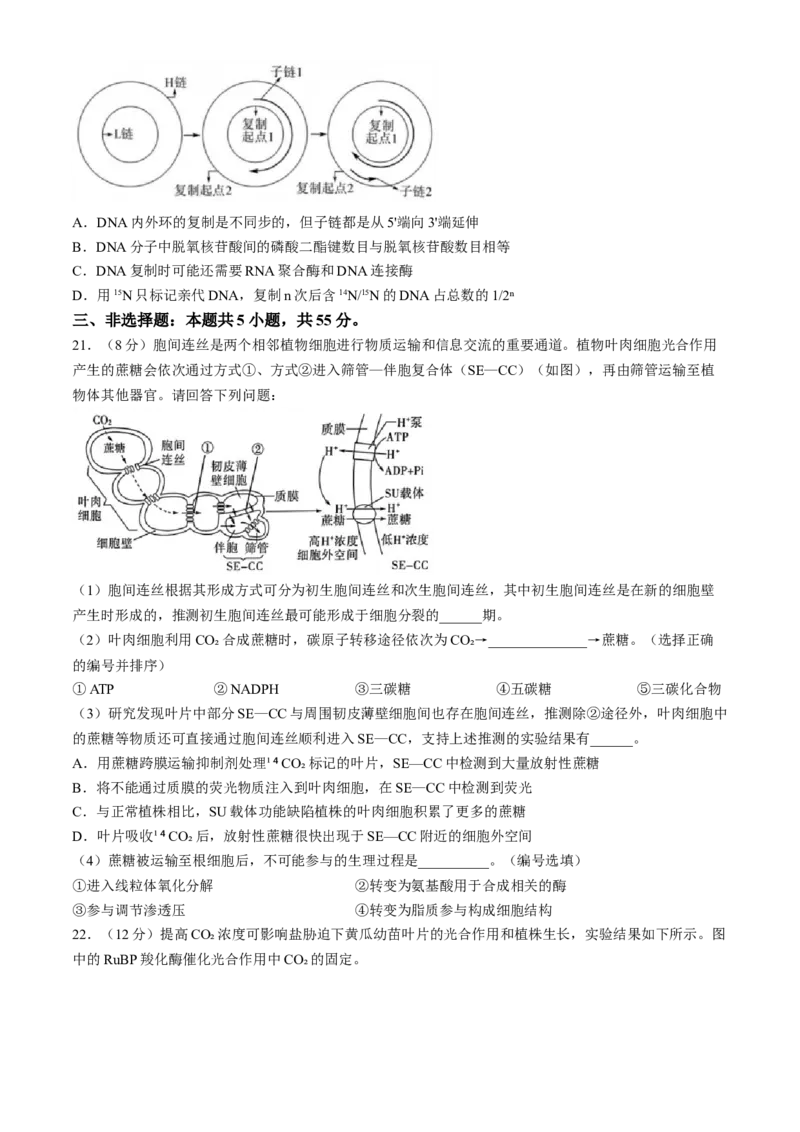 H链
L链
子链1
复制
起点1
复制起点2
复制
起点1
复制起点2
子链2
A．DNA内外环的复制是不同步的，但子链都是从5'端向3'端延伸
B．DNA分子中脱氧核苷酸间的磷酸二酯键数目与脱氧核苷酸数目相等
C．DNA复制时可能还需要RNA聚合酶和DNA连接酶
D．用¹⁵N只标记亲代DNA，复制n次后含¹⁴N/¹⁵N的DNA占总数的1/2ⁿ
三、非选择题：本题共5小题，共55分。
21．（8分）胞间连丝是两个相邻植物细胞进行物质运输和信息交流的重要通道。植物叶肉细胞光合作用
产生的蔗糖会依次通过方式①、方式②进入筛管—伴胞复合体（SE—CC）（如图），再由筛管运输至植
物体其他器官。请回答下列问题：
CO₂
蔗糖
胞间
连丝
①
②
韧皮薄
壁细胞
质膜
叶肉
细胞
细胞壁
伴胞 筛管
SE-CC
质膜
H⁺泵
ATP
H⁺
H⁺
ADP+Pi
SU载体
H⁺
H⁺
蔗糖
蔗糖
高H⁺浓度
细胞外空间
低H⁺浓度
SE-CC
（1）胞间连丝根据其形成方式可分为初生胞间连丝和次生胞间连丝，其中初生胞间连丝是在新的细胞壁
产生时形成的，推测初生胞间连丝最可能形成于细胞分裂的______期。
（2）叶肉细胞利用CO₂合成蔗糖时，碳原子转移途径依次为CO₂→______________→蔗糖。（选择正确
的编号并排序）
①ATP ②NADPH ③三碳糖 ④五碳糖 ⑤三碳化合物
（3）研究发现叶片中部分SE—CC与周围韧皮薄壁细胞间也存在胞间连丝，推测除②途径外，叶肉细胞中
的蔗糖等物质还可直接通过胞间连丝顺利进入SE—CC，支持上述推测的实验结果有______。
A．用蔗糖跨膜运输抑制剂处理¹⁴CO₂标记的叶片，SE—CC中检测到大量放射性蔗糖
B．将不能通过质膜的荧光物质注入到叶肉细胞，在SE—CC中检测到荧光
C．与正常植株相比，SU载体功能缺陷植株的叶肉细胞积累了更多的蔗糖
D．叶片吸收¹⁴CO₂后，放射性蔗糖很快出现于SE—CC附近的细胞外空间
（4）蔗糖被运输至根细胞后，不可能参与的生理过程是__________。（编号选填）
①进入线粒体氧化分解 ②转变为氨基酸用于合成相关的酶
③参与调节渗透压 ④转变为脂质参与构成细胞结构
22．（12分）提高CO₂浓度可影响盐胁迫下黄瓜幼苗叶片的光合作用和植株生长，实验结果如下所示。图
中的RuBP羧化酶催化光合作用中CO₂的固定。